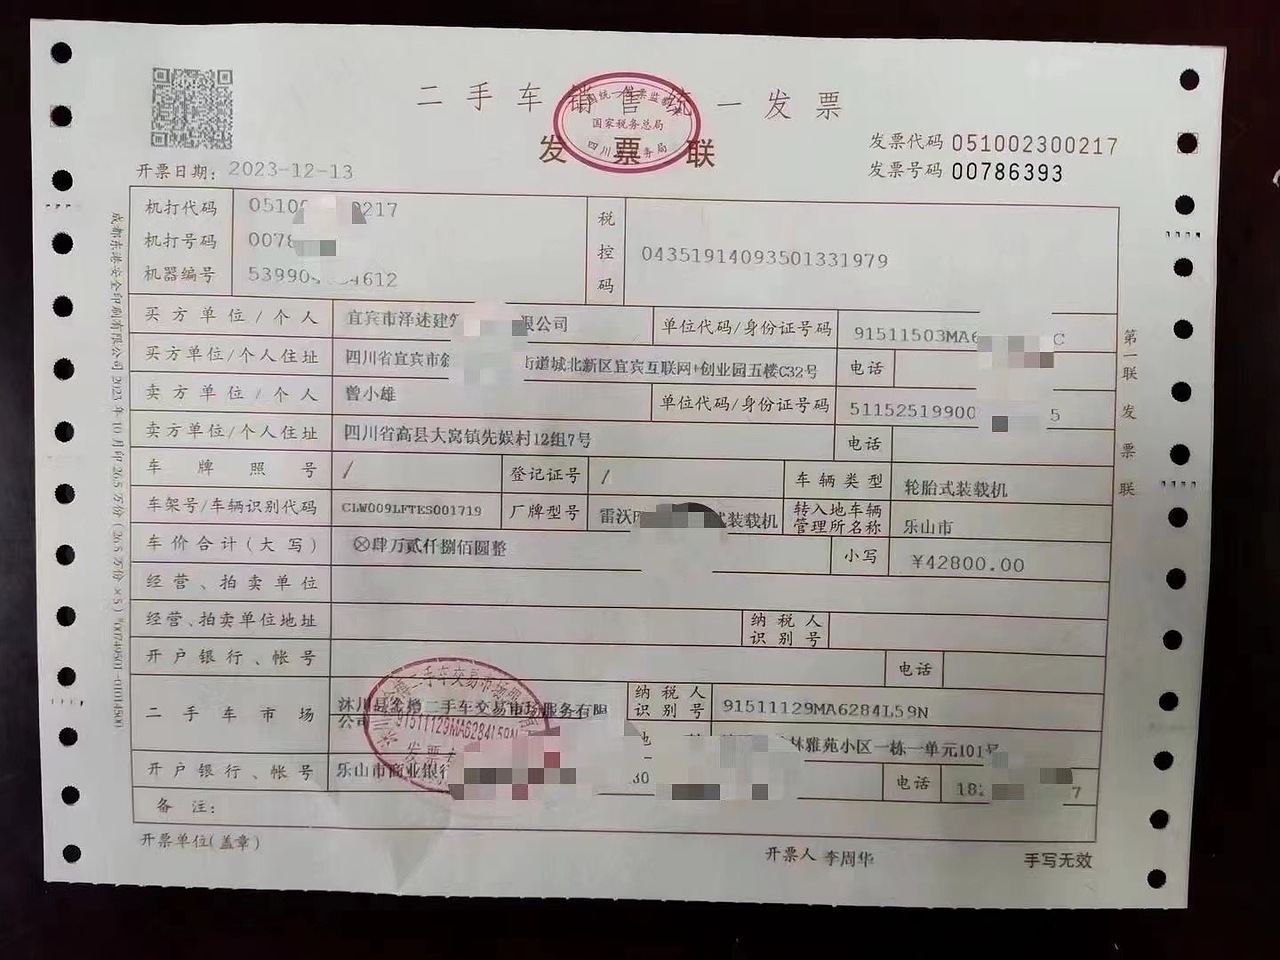 二手车销售统一发票
发票联
国家税务总局
发票代码 051002300217
发票号码 00786393
开票日期: 2023-12-13
机打代码 0510 217
机打号码 0078
机器编号 53990 4612
税控码 04351914093501331979
买方单位/个人 宜宾市泽述建 限公司 单位代码/身份证号码 91511503MA6 C
买方单位/个人住址 四川省宜宾市叙 街道城北新区宜宾互联网+创业园五楼C32号 电话
卖方单位/个人 曾小雄 单位代码/身份证号码 51152519900 5
卖方单位/个人住址 四川省高县大窝镇先娱村12组7号 电话
车牌照号 / 登记证号 / 车辆类型 轮胎式装载机
车架号/车辆识别代码 CLW009LFTES001719 厂牌型号 雷沃 式装载机 转入地车辆管理所名称 乐山市
车价合计(大写) ⊗肆万贰仟捌佰圆整 小写 ¥42800.00
经营、拍卖单位
经营、拍卖单位地址 纳税人识别号
开户银行、帐号 电话
二手车市场 沐川县 二手车交易市场服务有限公司 纳税人识别号 91511129MA6284L59N
地 林雅苑小区一栋一单元101号
开户银行、帐号 乐山市商业银行 30 电话 18 7
备注:
开票单位(盖章) 开票人 李周华 手写无效
第一联 发票联
91511129MA6284L59N